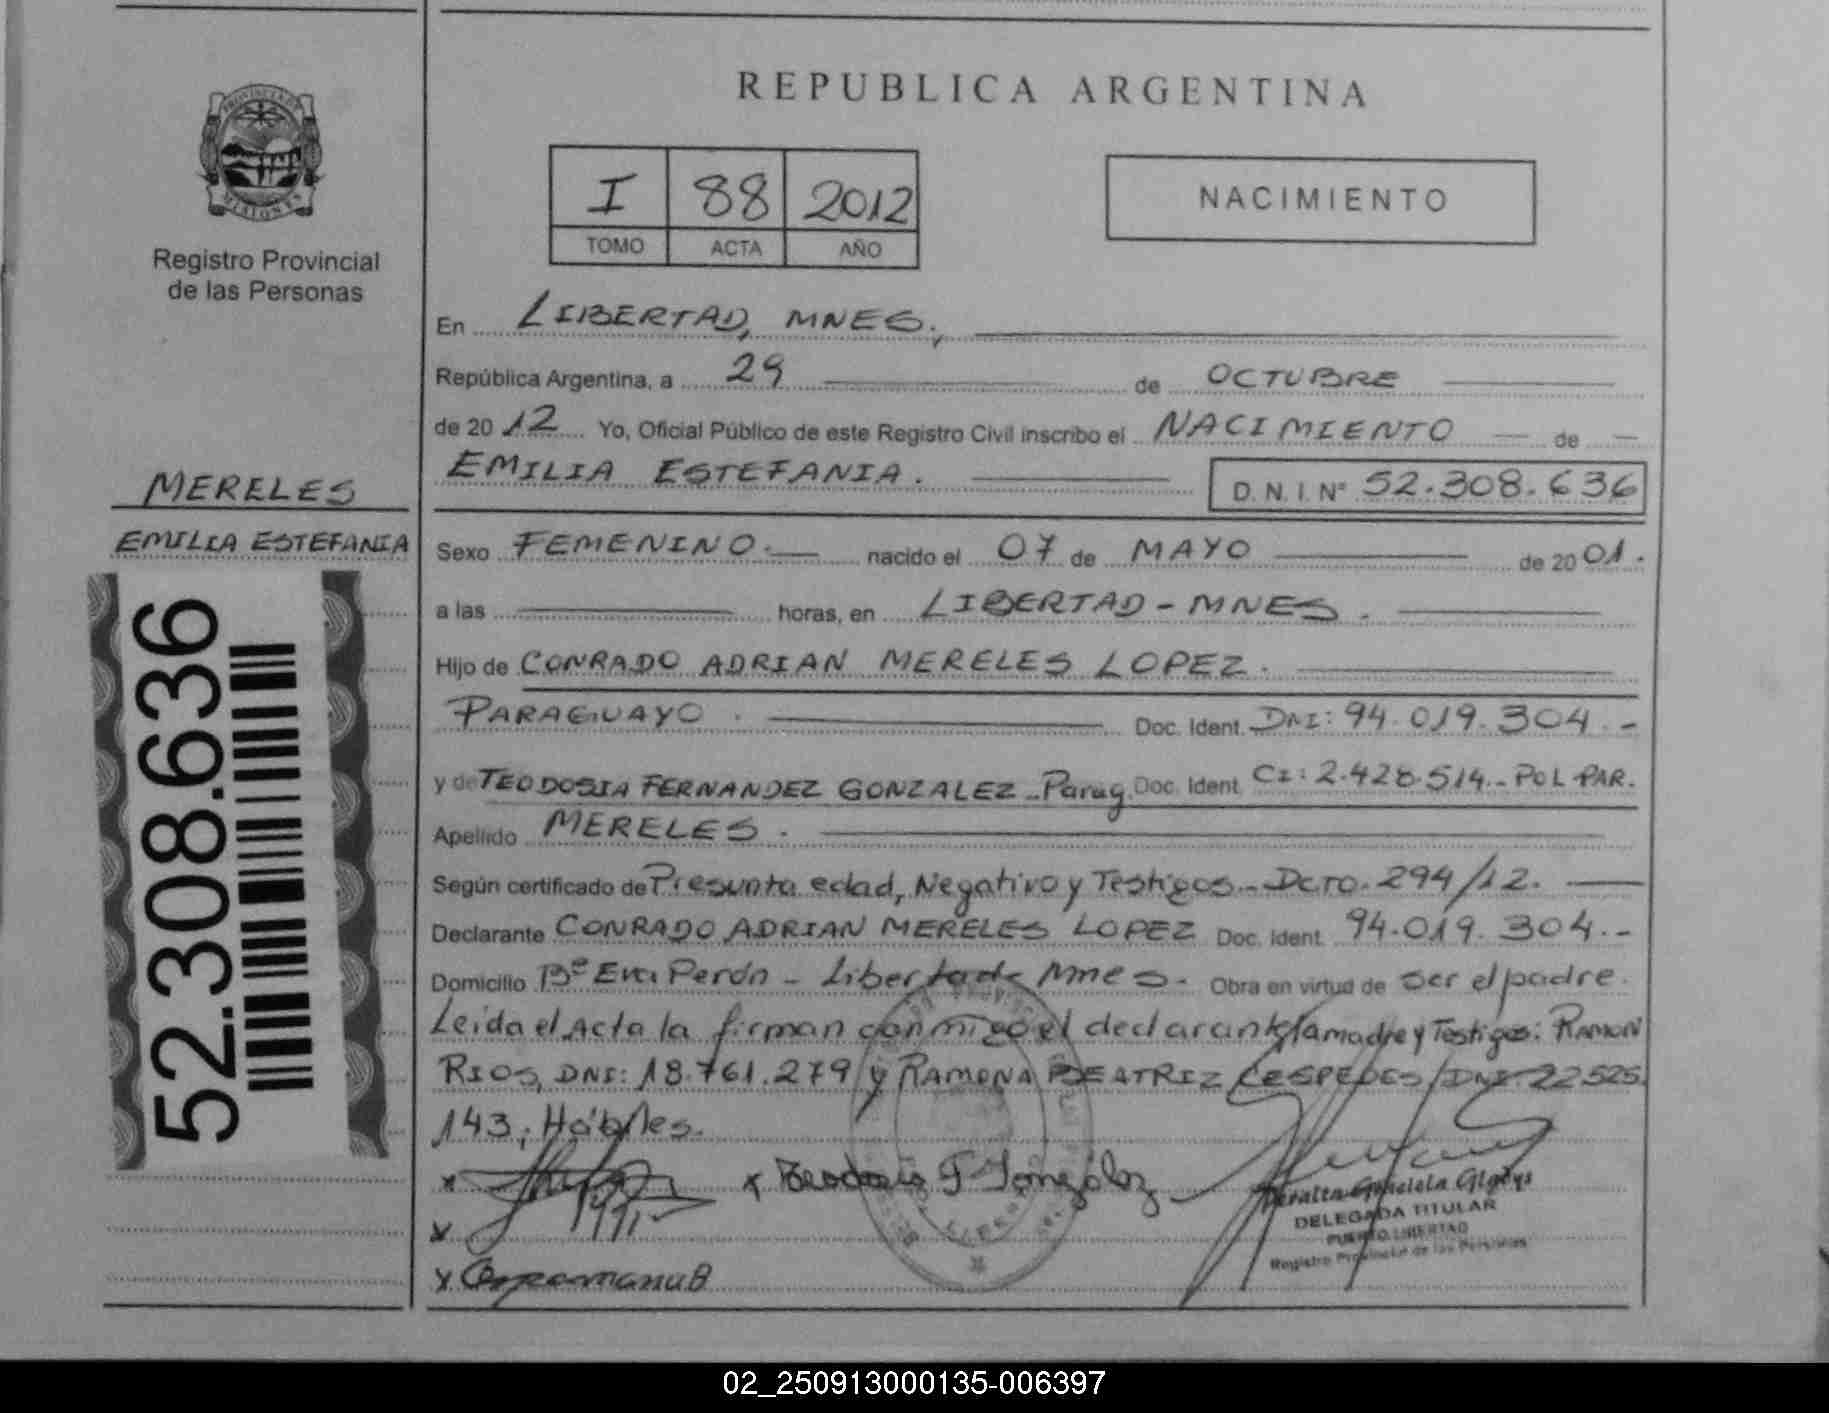 REPUBLICA ARGENTINA
PROVINCIA DE
MISIONES
Registro Provincial
de las Personas
I 88 2012
TOMO ACTA AÑO
NACIMIENTO
En LIBERTAD, MNES.,
República Argentina, a 29 de OCTUBRE
de 2012 Yo, Oficial Público de este Registro Civil inscribo el NACIMIENTO de
EMILIA ESTEFANIA. D. N. I. Nº 52.308.636
MERELES
EMILIA ESTEFANIA
52.308.636
Sexo FEMENINO. nacido el 07 de MAYO de 2001.
a las horas, en LIBERTAD - MNES.
Hijo de CONRADO ADRIAN MERELES LOPEZ.
PARAGUAYO. Doc. Ident. DNI: 94.019.304.-
y de TEODOSIA FERNANDEZ GONZALEZ - Parag. Doc. Ident. CI: 2.428.514.- POL PAR.
Apellido MERELES.
Según certificado de Presunta edad, Negativo y Testigos.- DCTO. 294/12.
Declarante CONRADO ADRIAN MERELES LOPEZ Doc. Ident. 94.019.304.-
Domicilio Bº Eva Perón - Libertad Mnes. Obra en virtud de ser el padre.
Leida el Acta la firman conmigo el declarante, la madre y Testigos: RAMON
RIOS, DNI: 18.761.279 y RAMONA BEATRIZ CESPEDES, DNI: 22.525.
143; Hábiles.
x
x Teodosia F Gonzalez
x
x
Peralta Graciela Gladys
DELEGADA TITULAR
PUERTO LIBERTAD
Registro Provincial de las Personas
02_250913000135-006397